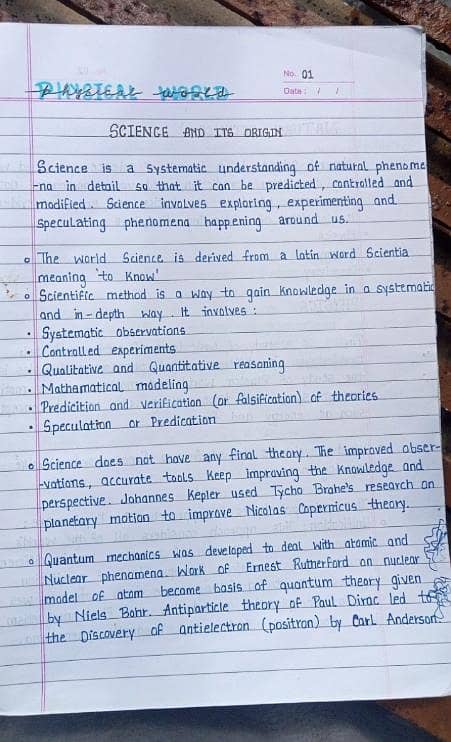 No. 01
Date: / /
PHYSICAL WORLD
SCIENCE AND ITS ORIGIN
Science is a systematic understanding of natural phenome
-na in detail so that it can be predicted, controlled and
modified. Science involves exploring, experimenting and
speculating phenomena happening around us.
The world Science is derived from a latin word Scientia
meaning 'to Know'
Scientific method is a way to gain Knowledge in a systematic
and in-depth way. It involves :
• Systematic observations
• Controlled experiments
• Qualitative and Quantitative reasoning
• Mathamatical modeling
• Predicition and verification (or falsification) of theories
• Speculation or Predication
Science does not have any final theory. The improved obser-
-vations, accurate tools Keep improving the Knowledge and
perspective. Johannes Kepler used Tycho Brahe's research on
planetary motion to improve Nicolas Copernicus theory.
Quantum mechanics was developed to deal with atomic and
Nuclear phenomena. Work of Ernest Rutherford on nuclear
model of atom became basis of quantum theory given
by Niels Bohr. Antiparticle theory of Paul Dirac led to
the Discovery of antielectron (positron) by Carl Anderson